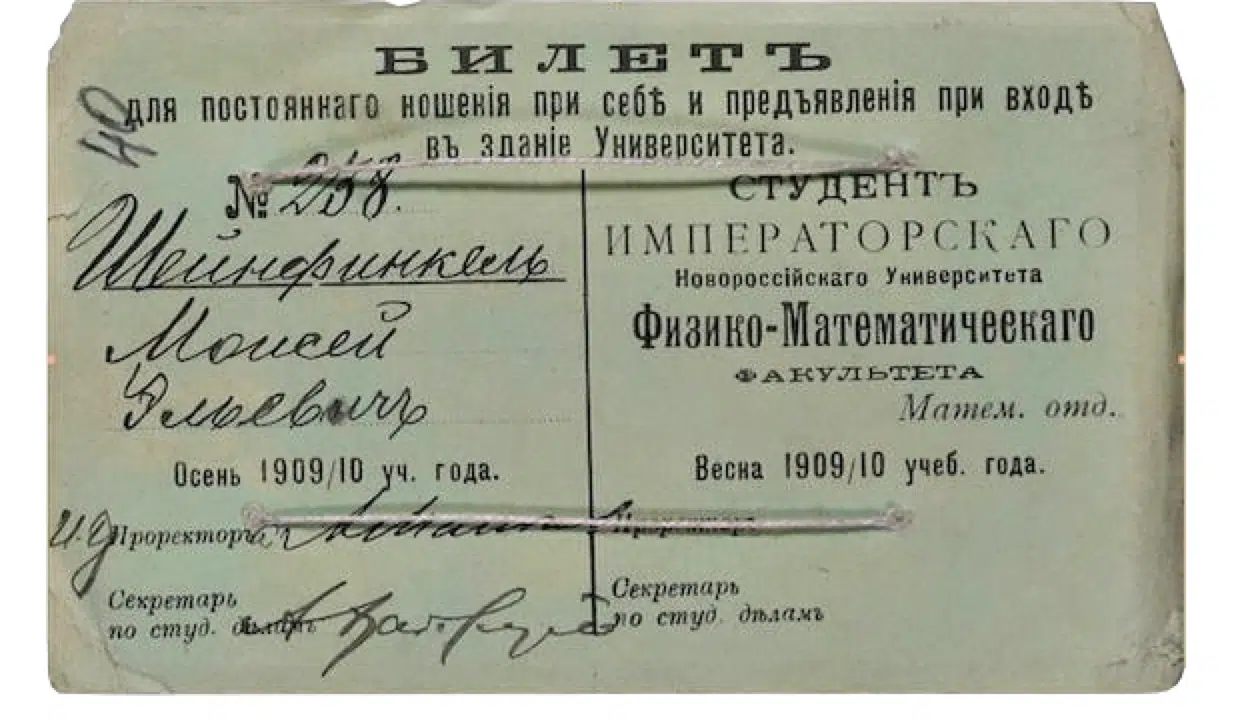 БИЛЕТЪ
для постояннаго ношенія при себѣ и предъявленія при входѣ
въ зданіе Университета.
40
№ 258.
Шейнфинкель
Моисей
Эльевичъ
Осень 1909/10 уч. года.
И.д. Проректора
Секретарь
по студ. дѣламъ
СТУДЕНТЪ
ИМПЕРАТОРСКАГО
Новороссійскаго Университета
Физико-Математическаго
ФАКУЛЬТЕТА
Матем. отд.
Весна 1909/10 учеб. года.
Проректоръ
Секретарь
по студ. дѣламъ